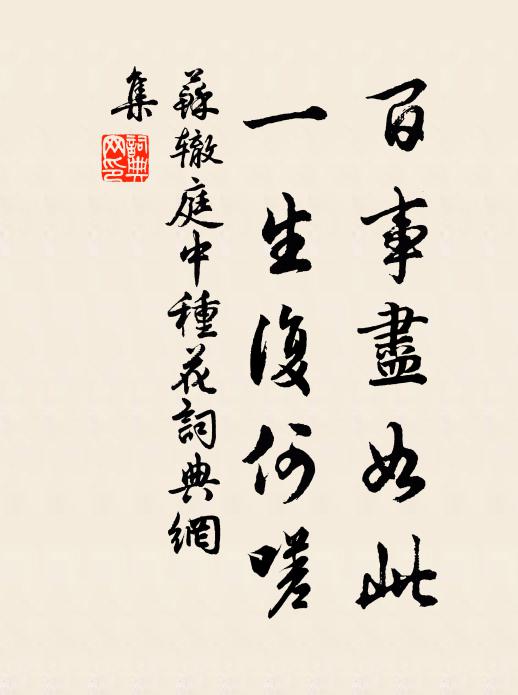 百事盡如此
一生復何嗟
蘇轍庭中種花詞典網
集
詞典
网印